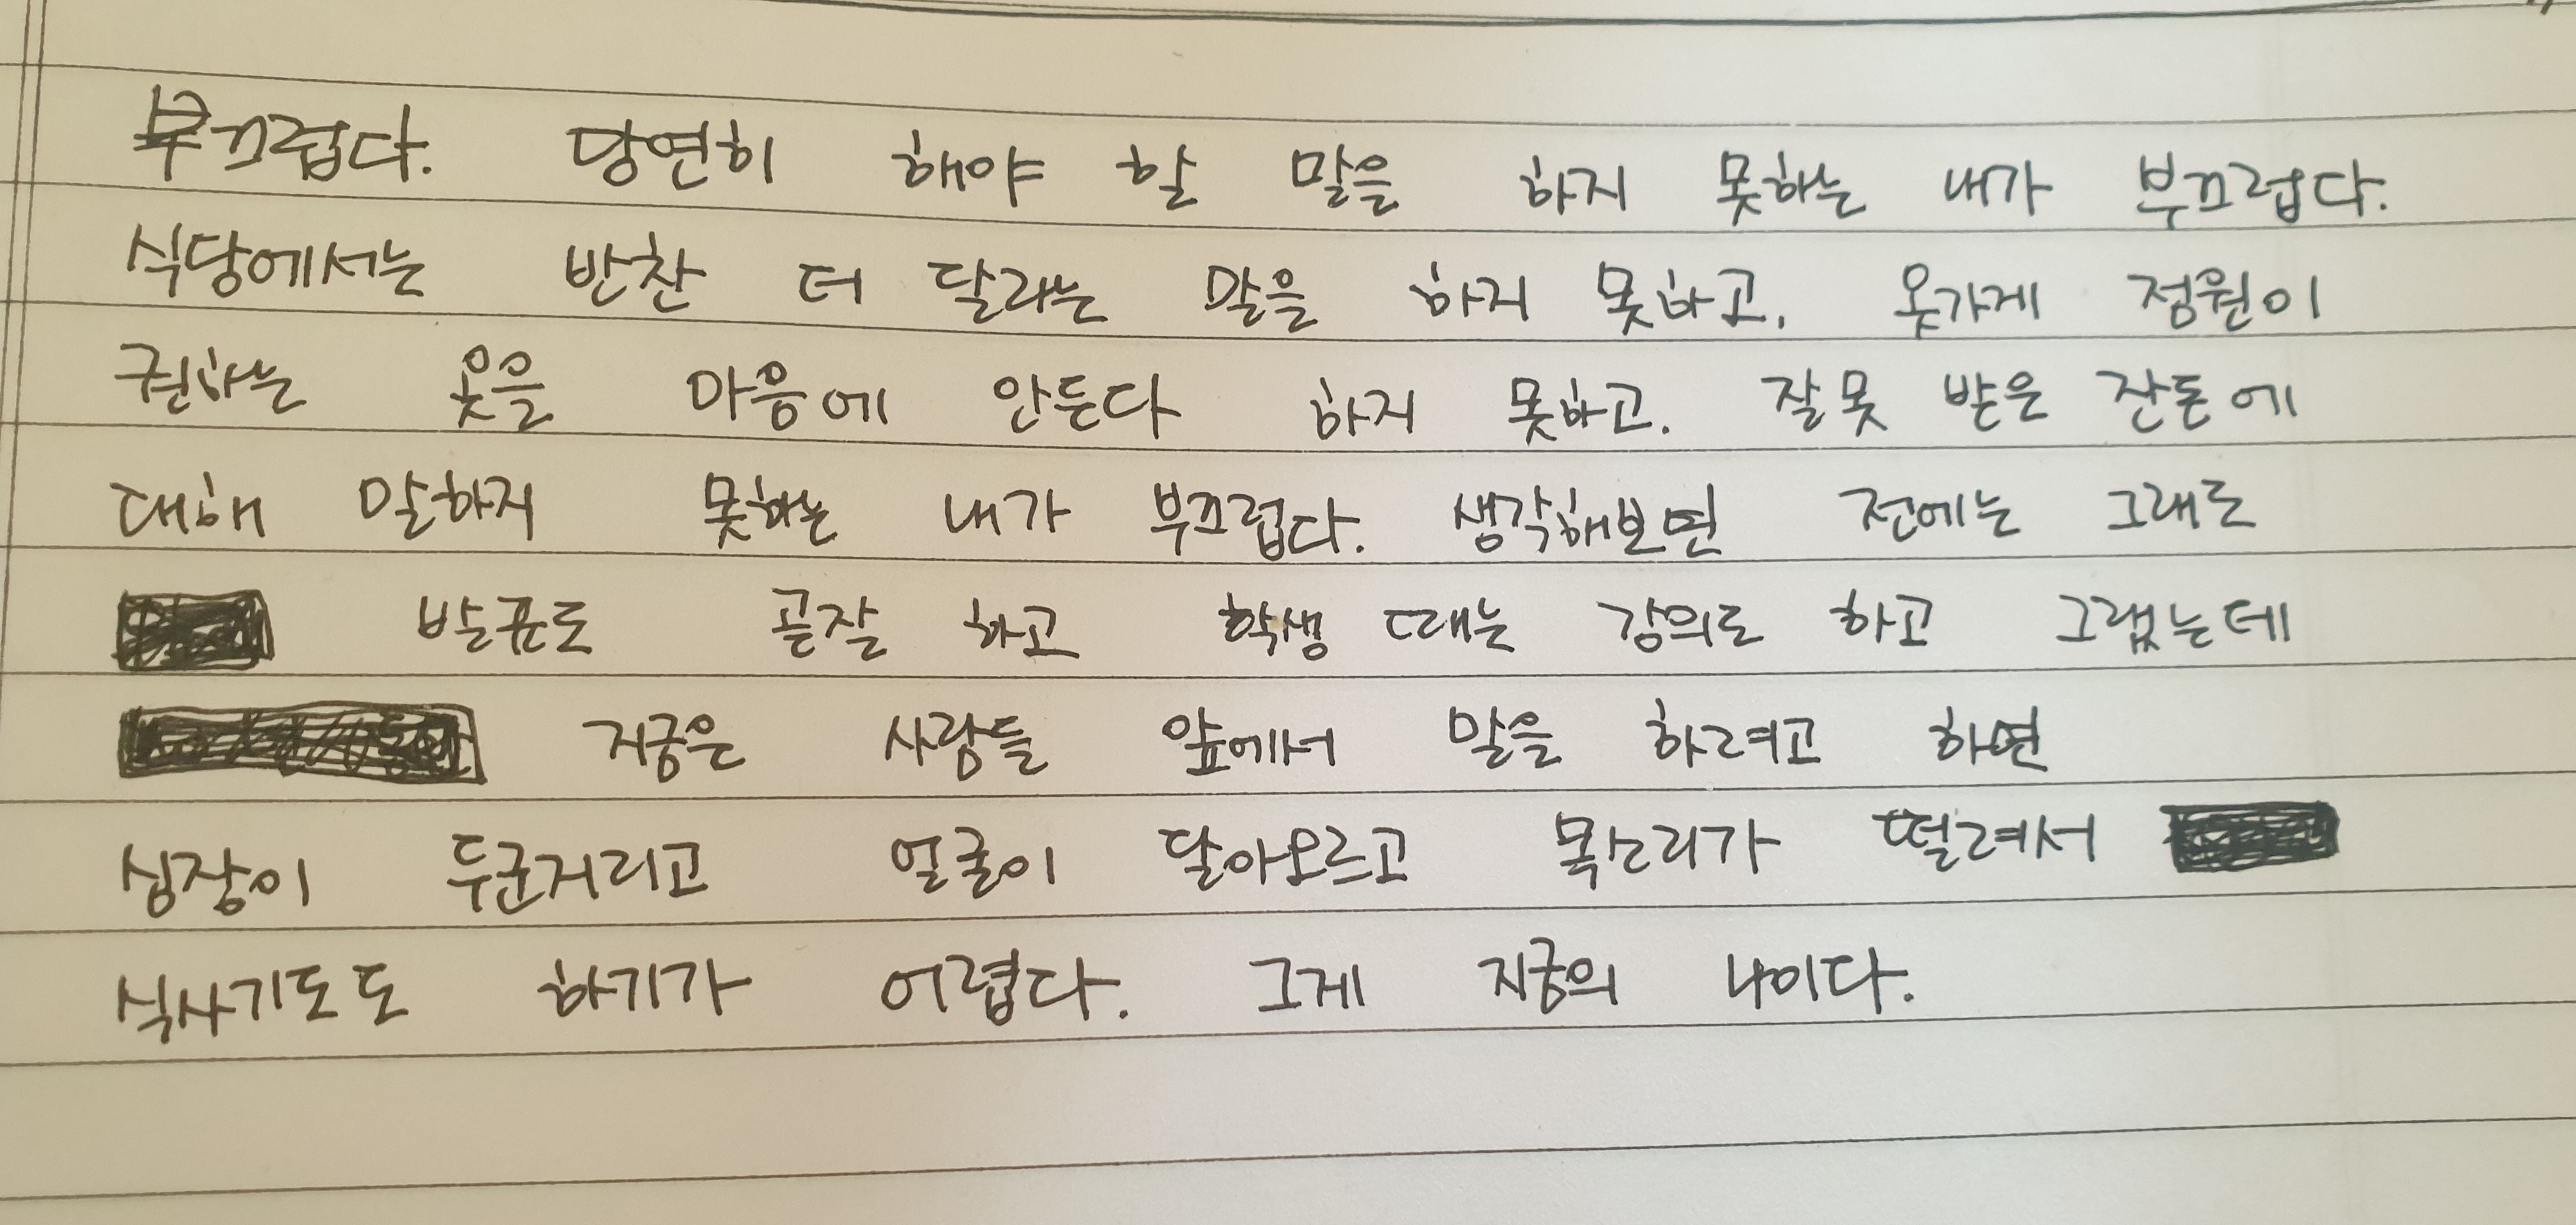 부끄럽다. 당연히 해야 할 말을 하지 못하는 내가 부끄럽다.
식당에서는 반찬 더 달라는 말을 하지 못하고, 옷가게 점원이
권하는 옷을 마음에 안든다 하지 못하고. 잘못 받은 잔돈에
대해 말하지 못하는 내가 부끄럽다. 생각해보면 전에는 그래도
발표도 곧잘 하고 학생 때는 강의도 하고 그랬는데
지금은 사람들 앞에서 말을 하려고 하면
심장이 두근거리고 얼굴이 달아오르고 목소리가 떨려서
식사기도도 하기가 어렵다. 그게 지금의 나이다.